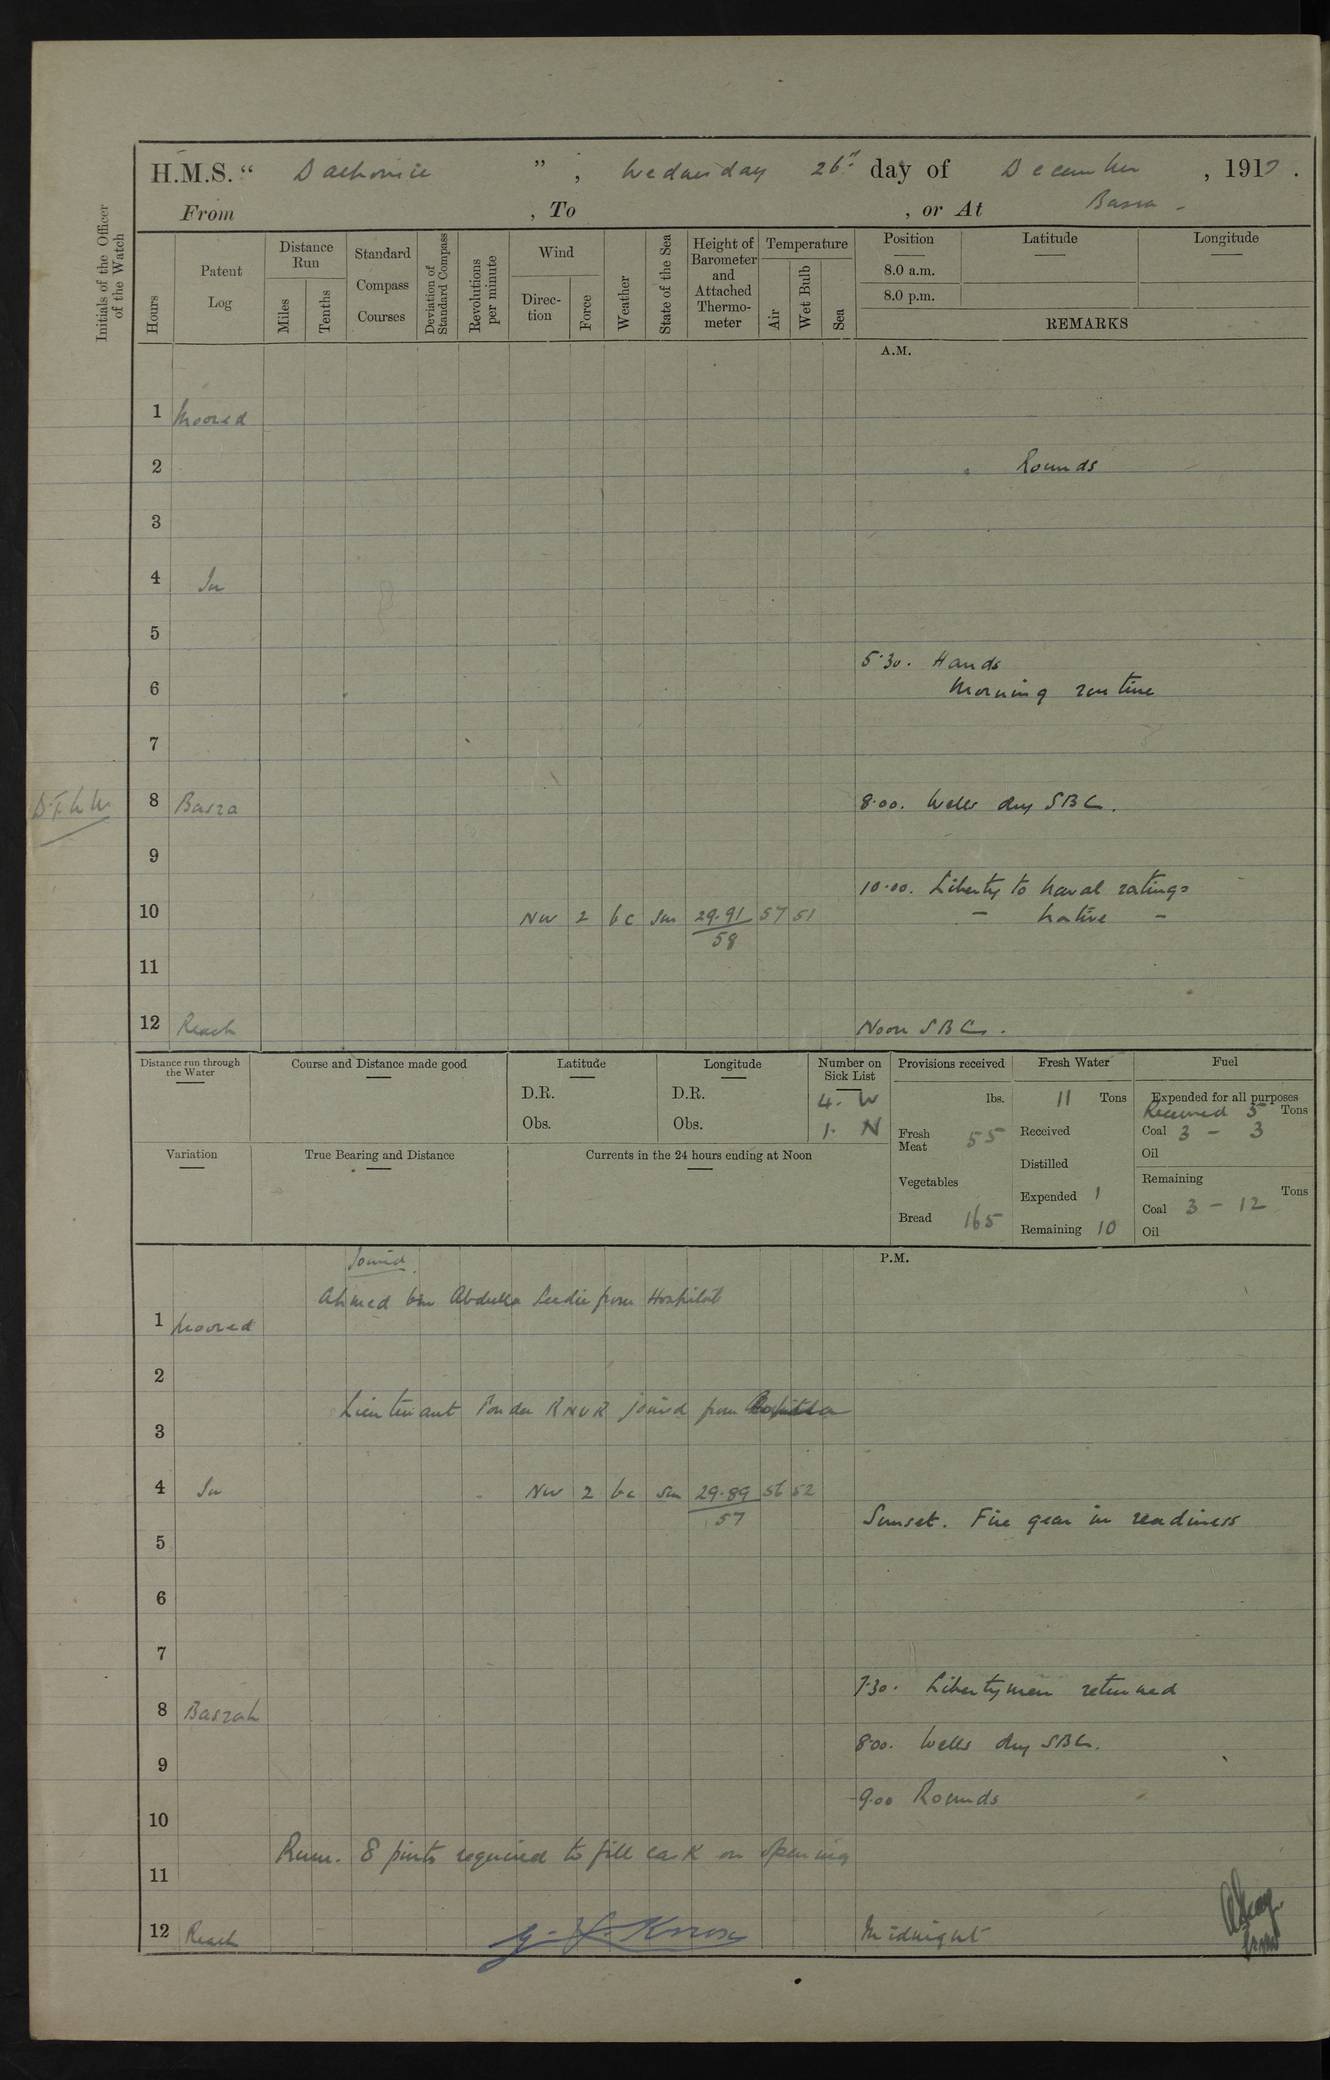 H.M.S. " Dalhousie ", Wednesday 26th day of December, 1917.
From , To , or At Basra -
Initials of the Officer of the Watch
Hours
Patent Log
Distance Run
Miles
Tenths
Standard Compass Courses
Deviation of Standard Compass
Revolutions per minute
Wind
Direction
Force
Weather
State of the Sea
Height of Barometer and Attached Thermometer
Temperature
Air
Wet Bulb
Sea
Position
Latitude
Longitude
8.0 a.m.
8.0 p.m.
REMARKS
A.M.
1 Moored
2 Rounds
3
4 In
5
5.30. Hands
6 Morning routine
7
8 Basra 8.00. Wells dry SBC.
9
10.00. Liberty to Naval ratings
10 NW 2 bc Sm 29.91 57 51 - Native -
58
11
12 Reach Noon SBC.
Distance run through the Water
Course and Distance made good
Latitude
D.R.
Obs.
Longitude
D.R.
Obs.
Number on Sick List
4. W
1. N
Provisions received
lbs.
Fresh Meat 55
Vegetables
Bread 165
Fresh Water
11 Tons
Received
Distilled
Expended 1
Remaining 10
Fuel
Expended for all purposes
Received 5 Tons
Coal 3 - 3
Oil
Remaining
Tons
Coal 3 - 12
Oil
Variation
True Bearing and Distance
Currents in the 24 hours ending at Noon
P.M.
Joined
Ahmed bin Abdulla Seedie from Hospital
1 Moored
2
Lieutenant Ponder RNVR joined from
3
4 In NW 2 bc Sm 29.89 56 52
57
Sunset. Fire gear in readiness
5
6
7
7.30. Libertymen returned
8 Basrah
8.00. Wells dry SBC.
9
9.00 Rounds
10
Rum. 8 pints required to fill cask on opening
11
12 Reach Midnight